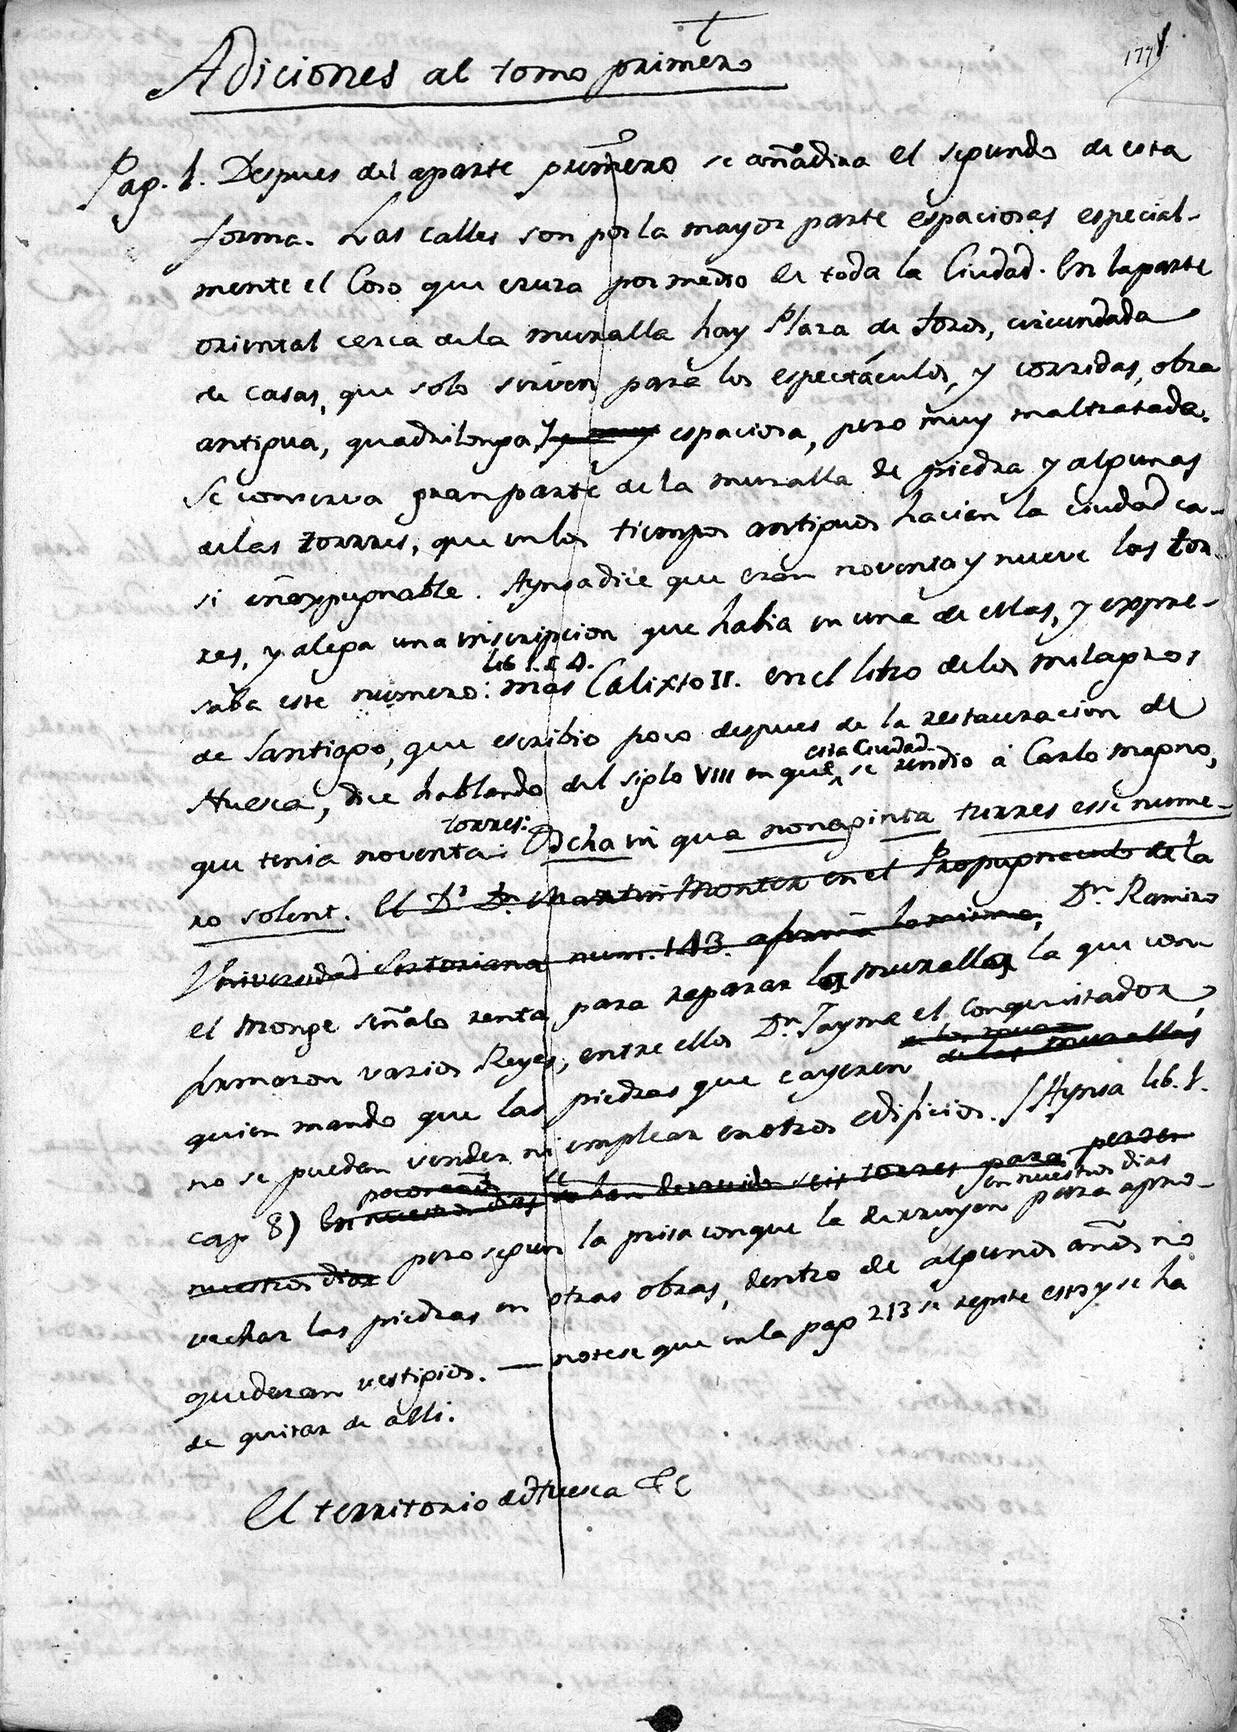 Adiciones al tomo primero
Pag. 1. Despues del aparte primero se añadira el segundo de esta
forma. Las calles son por la mayor parte espaciosas especial-
mente el Coso que cruza por medio de toda la Ciudad. En la parte
oriental cerca de la muralla hay Plaza de toros, circundada
de casas, que solo sirven para los espectáculos, y corridas, obra
antigua, quadrilonga, y muy espaciosa, pero muy maltratada.
Se conserva gran parte de la muralla de piedra y algunas
de las torres, que en los tiempos antiguos hacien la ciudad ca-
si inexpugnable. Aynsa dice que eran noventa y nueve las tor-
res, y alega una inscripcion que habia en una de ellas, y expre-
lib. 1. c. 8.
saba este numero: mas Calixto II. en el libro de los milagros
de Santiago, que escribio poco despues de la restauracion de
esta Ciudad
Huesca, dice hablando del siglo VIII en que se rindio á Carlo magno,
torres:
que tenia noventa: Oscha in qua nonaginta turres esse nume-
ro solent. El Dr. Dn. Martin Monter en el Propugnaculo de la
Universidad Sertoriana num. 143. afirma lo mismo, Dn. Ramiro
el Monge señalo renta para reparar los muralles la que con-
firmaron varios Reyes, entre ellos Dn. Jayme el Conquistador,
quien mando que las piedras que cayeren de las murallas
no se puedan vender ni emplear en otros edificios. (Aynsa lib. 1.
pocos años
cap 8) En nuestros dias se han derruido seis torres para
en nuestros dias
nuestros dias pero segun la prisa conque la derruyen para apro-
vechar las piedras en otras obras, dentro de algunos años no
quedaran vestigios. — notese que en la pag 213 se repite esto y se ha
de quitar de alli.
El territorio de Huesca &c